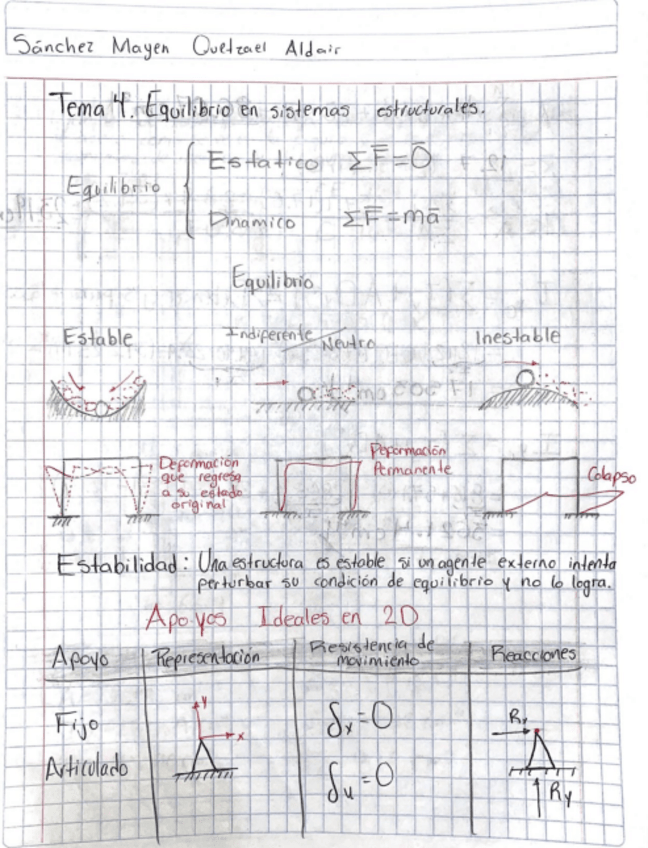 Sánchez Mayen Quetzael Aldair
Tema 4. Equilibrio en sistemas estructurales.
Equilibrio
Estatico ΣF̅=0̅
Dinamico ΣF̅=ma̅
Equilibrio
Estable Indiferente/Neutro Inestable
Deformación
que regresa
a su estado
original
Deformación
Permanente
Colapso
Estabilidad: Una estructura es estable si un agente externo intenta
perturbar su condición de equilibrio y no lo logra.
Apoyos Ideales en 2D
Apoyo Representación Resistencia de movimiento Reacciones
Fijo
Articulado
y
x
δx=0
δy=0
Rx
Ry